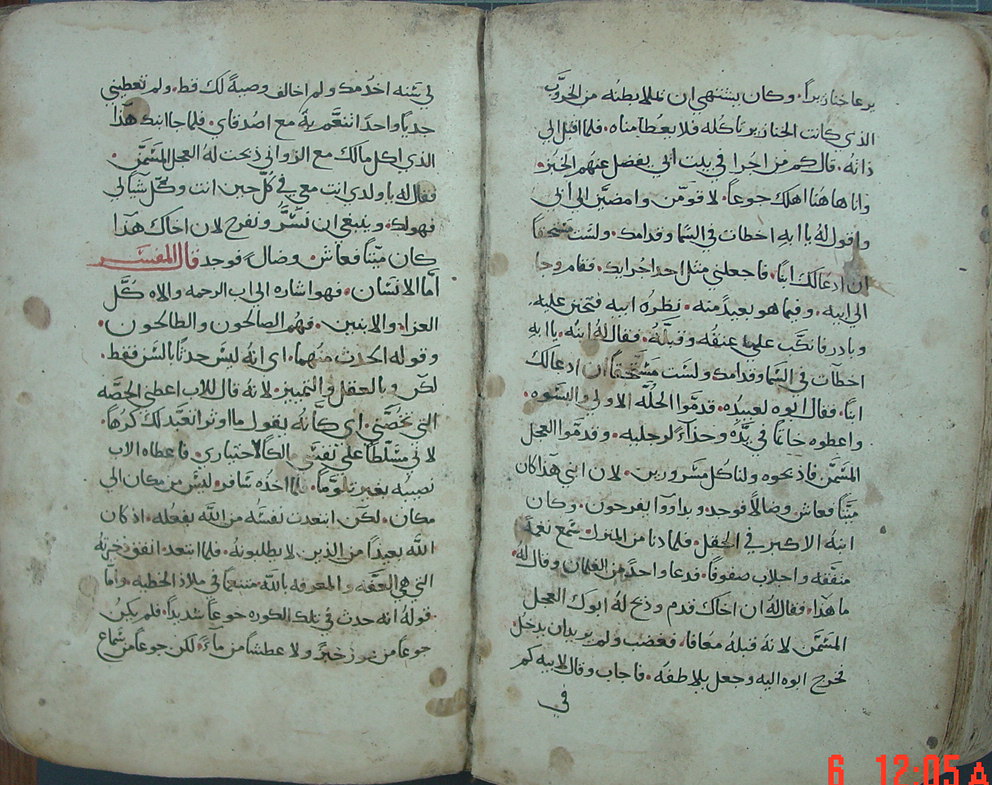 يرعا خنازيراً. وكان يشتهي ان يملا بطنه من الخروب
الذي كانت الخنازير تاكله فلا يعطا مناه. فلما اقبل الي
ذاته. قال كم من اجرا في بيت ابي يفضل عنهم الخبز.
وانا هاهنا اهلك جوعاً. لاقومن وامضين الي ابي
واقول له يا ابه اخطات في السما وقدامك. ولست مستحقاً
ان ادعا لك ابناً. فاجعلني مثل احد اجرايك. فقام وجا
الي ابيه. وفيما هو بعيد منه. نظره ابيه فتحنن عليه.
وبادر فانكب علي عنقه وقبله. فقال له ابنه. يا ابه
اخطات في السما وقدامك ولست مستحقاً ان ادعا لك
ابناً. فقال ابوه لعبيده. قدموا الحلّه الاولي والبسوه.
واعطوه خاتماً في يده وحذاءً لرجليه. وقدموا العجل
المسمن فاذبحوه ولناكل مسرورين. لان ابني هذا كان
ميتاً فعاش وضالاً فوجد. وبداووا يفرحون. وكان
ابنه الاكبر في الحقل. فلما دنا من المنزل سمع نغمة
متفقه واجلاب صفوفاً. فدعا واحد من الغلمان وقال له.
ما هذا. فقال له ان اخاك قدم وذبح له ابوك العجل
المسمن لانه قبله معافا. فغضب ولم يريد ان يدخل.
فخرج ابوه اليه وجعل يلاطفه. فاجاب وقال لابيه كم
في
في سنه اخدمك ولم اخالف وصية لك قط. ولم تعطيني
جدياً واحداً اتنعم به مع اصدقاي. فلما جا ابنك هذا
الذي اكل مالك مع الزواني ذبحت له العجل المسمن.
فقال له يا ولدي انت معي في كل حين انت وكل شيا لي
فهو لك. وينبغي ان نسر ونفرح لان اخاك هذا
كان ميتاً فعاش. وضال فوجد قال المفسر
اما الانسان. فهو اشاره الي اب الرحمه والاه كل
العزا. والابنين. فهم الصالحون والطالحون.
وقوله الحدث منهما. اي انه ليس حدثاً بالسن فقط.
لكن وبالعقل والتمييز. لانه قال للاب اعطني الحصه
التي تخصني. اي كانه يقول ما اوثر اتعبد لك كرهاً.
لاني مسلطاً علي نفسي بالكمال الاختياري. فاعطاه الاب
نصيبه بغير تلوماً. فلما اخذه سافر. ليس من مكان الي
مكان. لكن ابتعدت نفسه من الله بفعله. اذ كان
الله بعيداً من الذين لا يطلبونه. فلما ابتعد انفق ذخيرته
التي هي العفه والمعرفه بالله متنعماً في ملاذ الخطيه. واما
قوله انه حدث في تلك الكوره جوعاً شديداً. فلم يكن
جوعاً من خبز ولا عطشاً من ماءً. لكن جوعاً من سماع